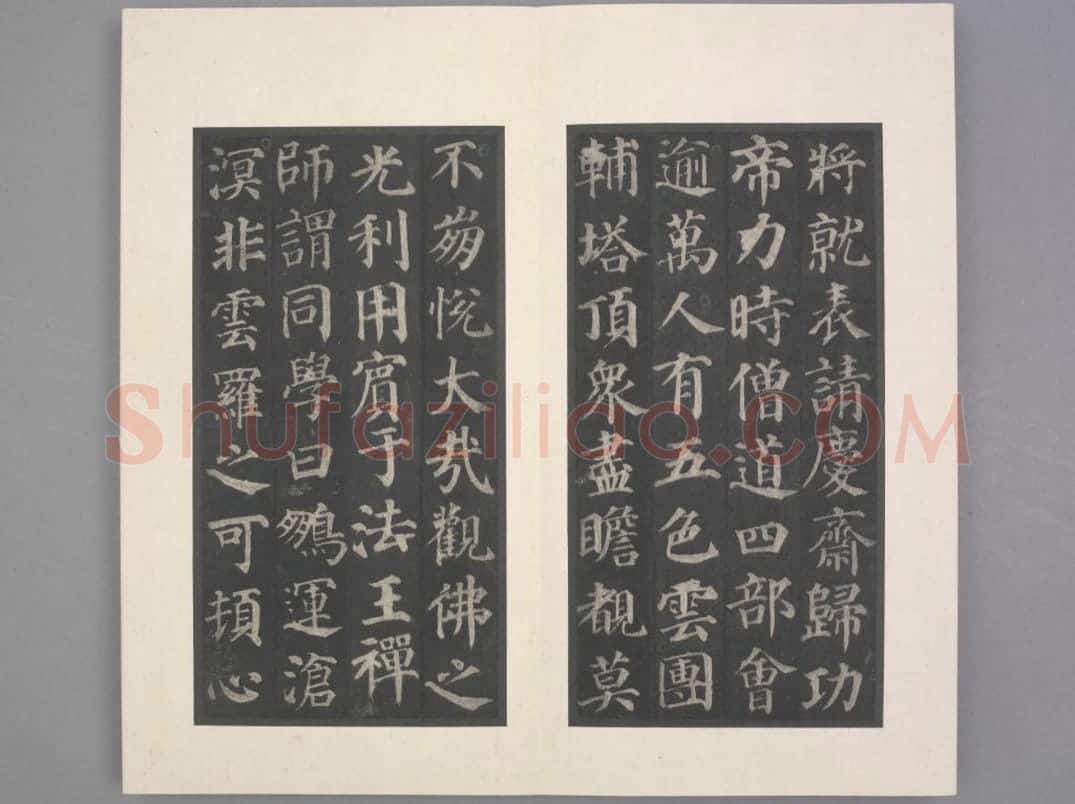 將就表請慶齋歸功
帝力時僧道四部會
逾萬人有五色雲團
輔塔頂衆盡瞻覩莫
不歎悅大哉觀佛之
光利用賓于法王禪
師謂同學曰鵬運滄
溟非雲羅之可頓心
Shufaziliao.COM